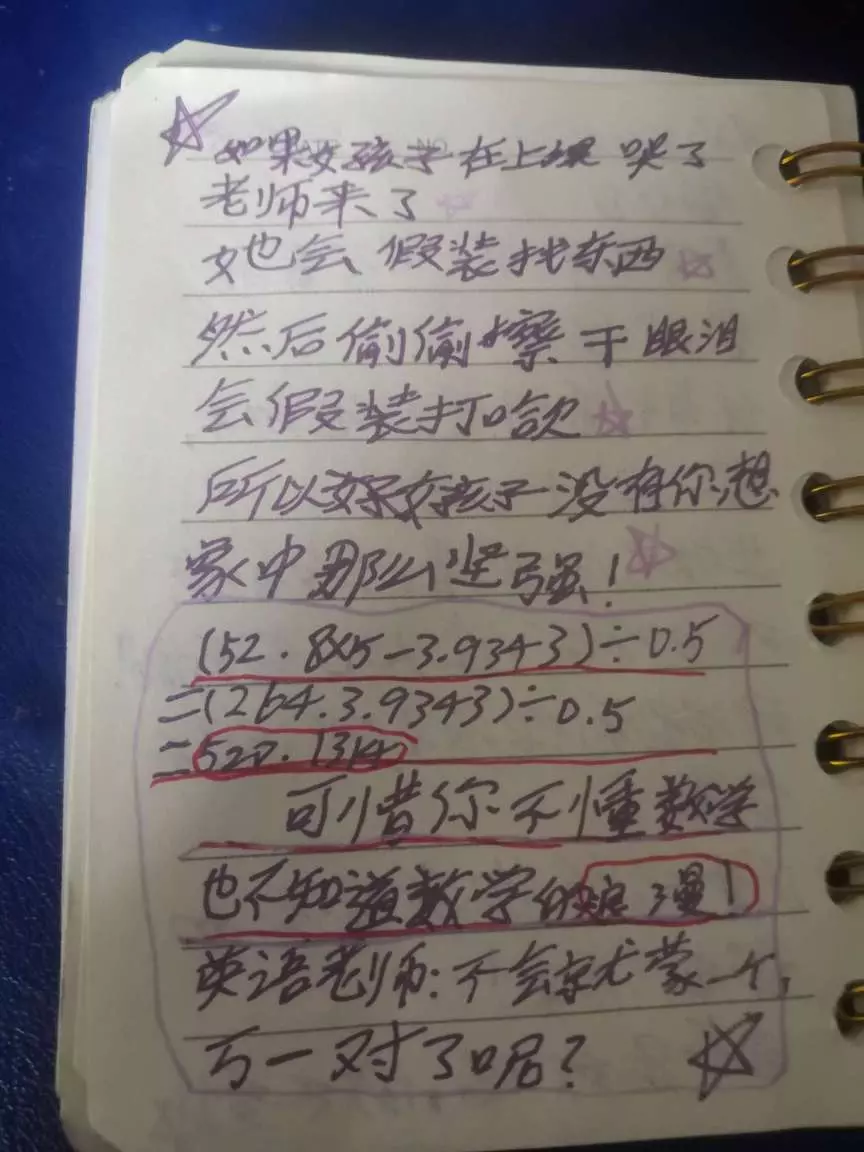 如果女孩子在上课哭了
老师来了
她会假装找东西
然后偷偷擦干眼泪
会假装打哈欠
所以女孩子没有你想
象中那么坚强!
(52.8×5-3.9343)÷0.5
=(264.3.9343)÷0.5
=520.1314
可惜你不懂数学
也不知道数学的浪漫!
英语老师:不会就蒙一个,
万一对了呢?